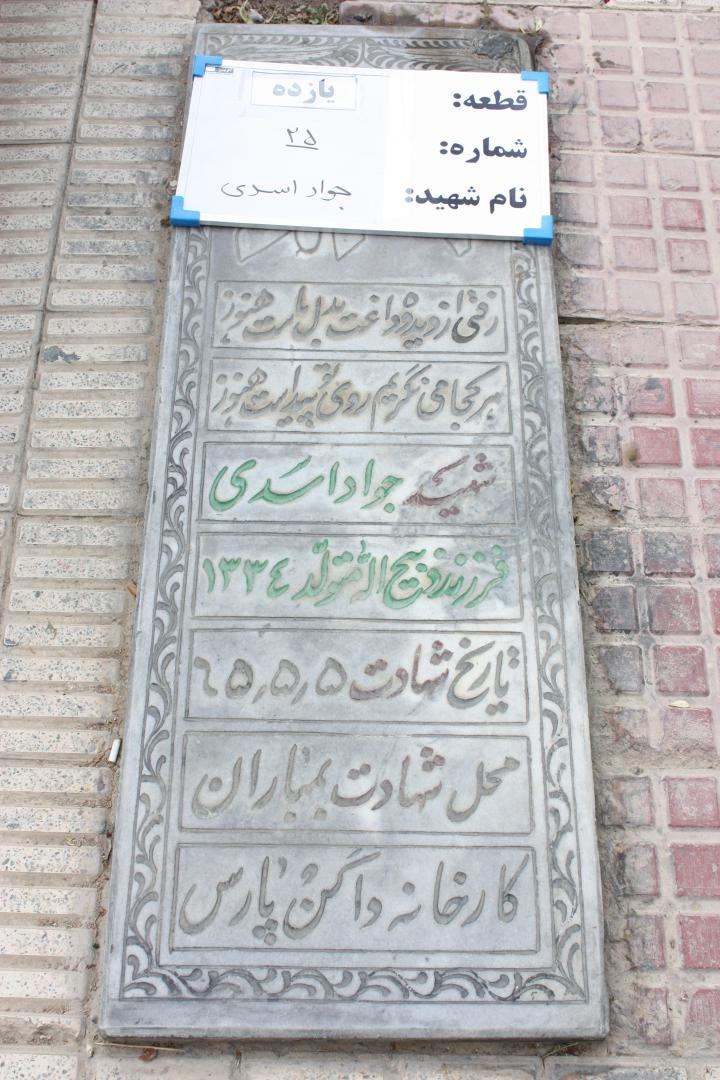 قطعه: یازده
شماره: ۲۵
نام شهید: جواد اسدی
رفتی از دیده و داغت بدل ماست هنوز
هر کجا می نگریم روی تو پیداست هنوز
شهید جواد اسدی
فرزند ذبیح اله متولد ۱۳۳٤
تاریخ شهادت ۵٫۵٫٦۵
محل شهادت بمباران
کارخانه واگن پارس